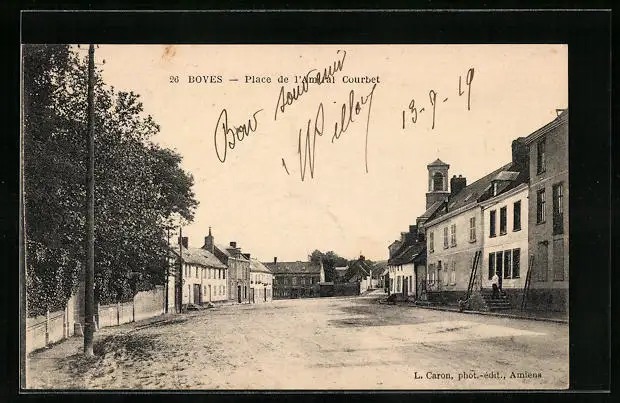 26 BOVES — Place de l'Amiral Courbet
Bon souvenir
Willoy
13-9-19
L. Caron, phot.-édit., Amiens